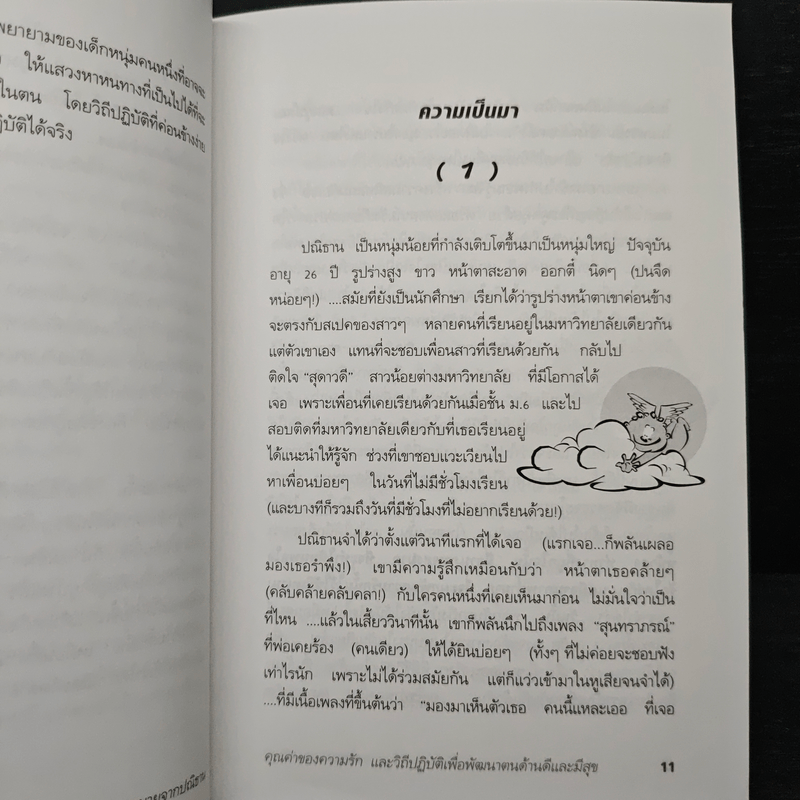 พยายามของเด็กหนุ่มคนหนึ่งที่อาจจะ
ให้แสวงหาหนทางที่เป็นไปได้ที่จะ
ในตน โดยวิถีปฏิบัติที่ค่อนข้างง่าย
บัติได้จริง
ความเป็นมา
( 1 )
ปณิธาน เป็นหนุ่มน้อยที่กำลังเติบโตขึ้นมาเป็นหนุ่มใหญ่ ปัจจุบัน
อายุ 26 ปี รูปร่างสูง ขาว หน้าตาสะอาด ออกตี๋ นิดๆ (ปนจืด
หน่อยๆ!) ....สมัยที่ยังเป็นนักศึกษา เรียกได้ว่ารูปร่างหน้าตาเขาค่อนข้าง
จะตรงกับสเปคของสาวๆ หลายคนที่เรียนอยู่ในมหาวิทยาลัยเดียวกัน
แต่ตัวเขาเอง แทนที่จะชอบเพื่อนสาวที่เรียนด้วยกัน กลับไป
ติดใจ “สุดาวดี” สาวน้อยต่างมหาวิทยาลัย ที่มีโอกาสได้
เจอ เพราะเพื่อนที่เคยเรียนด้วยกันเมื่อชั้น ม.6 และไป
สอบติดที่มหาวิทยาลัยเดียวกับที่เธอเรียนอยู่
ได้แนะนำให้รู้จัก ช่วงที่เขาชอบแวะเวียนไป
หาเพื่อนบ่อยๆ ในวันที่ไม่มีชั่วโมงเรียน
(และบางทีก็รวมถึงวันที่มีชั่วโมงที่ไม่อยากเรียนด้วย!)
ปณิธานจำได้ว่าตั้งแต่วินาทีแรกที่ได้เจอ (แรกเจอ...ก็พลันเผลอ
มองเธอรำพึง!) เขามีความรู้สึกเหมือนกับว่า หน้าตาเธอคล้ายๆ
(คลับคล้ายคลับคลา!) กับใครคนหนึ่งที่เคยเห็นมาก่อน ไม่มั่นใจว่าเป็น
ที่ไหน ....แล้วในเสี้ยววินาทีนั้น เขาก็พลันนึกไปถึงเพลง “สุนทราภรณ์”
ที่พ่อเคยร้อง (คนเดียว) ให้ได้ยินบ่อยๆ (ทั้งๆ ที่ไม่ค่อยจะชอบฟัง
เท่าไรนัก เพราะไม่ได้ร่วมสมัยกัน แต่ก็แว่วเข้ามาในหูเสียจนจำได้)
....ที่มีเนื้อเพลงที่ขึ้นต้นว่า “มองมาเห็นตัวเธอ คนนี้แหละเออ ที่เจอ
คุณค่าของความรัก และวิถีปฏิบัติเพื่อพัฒนาตนด้านดีและมีสุข 11